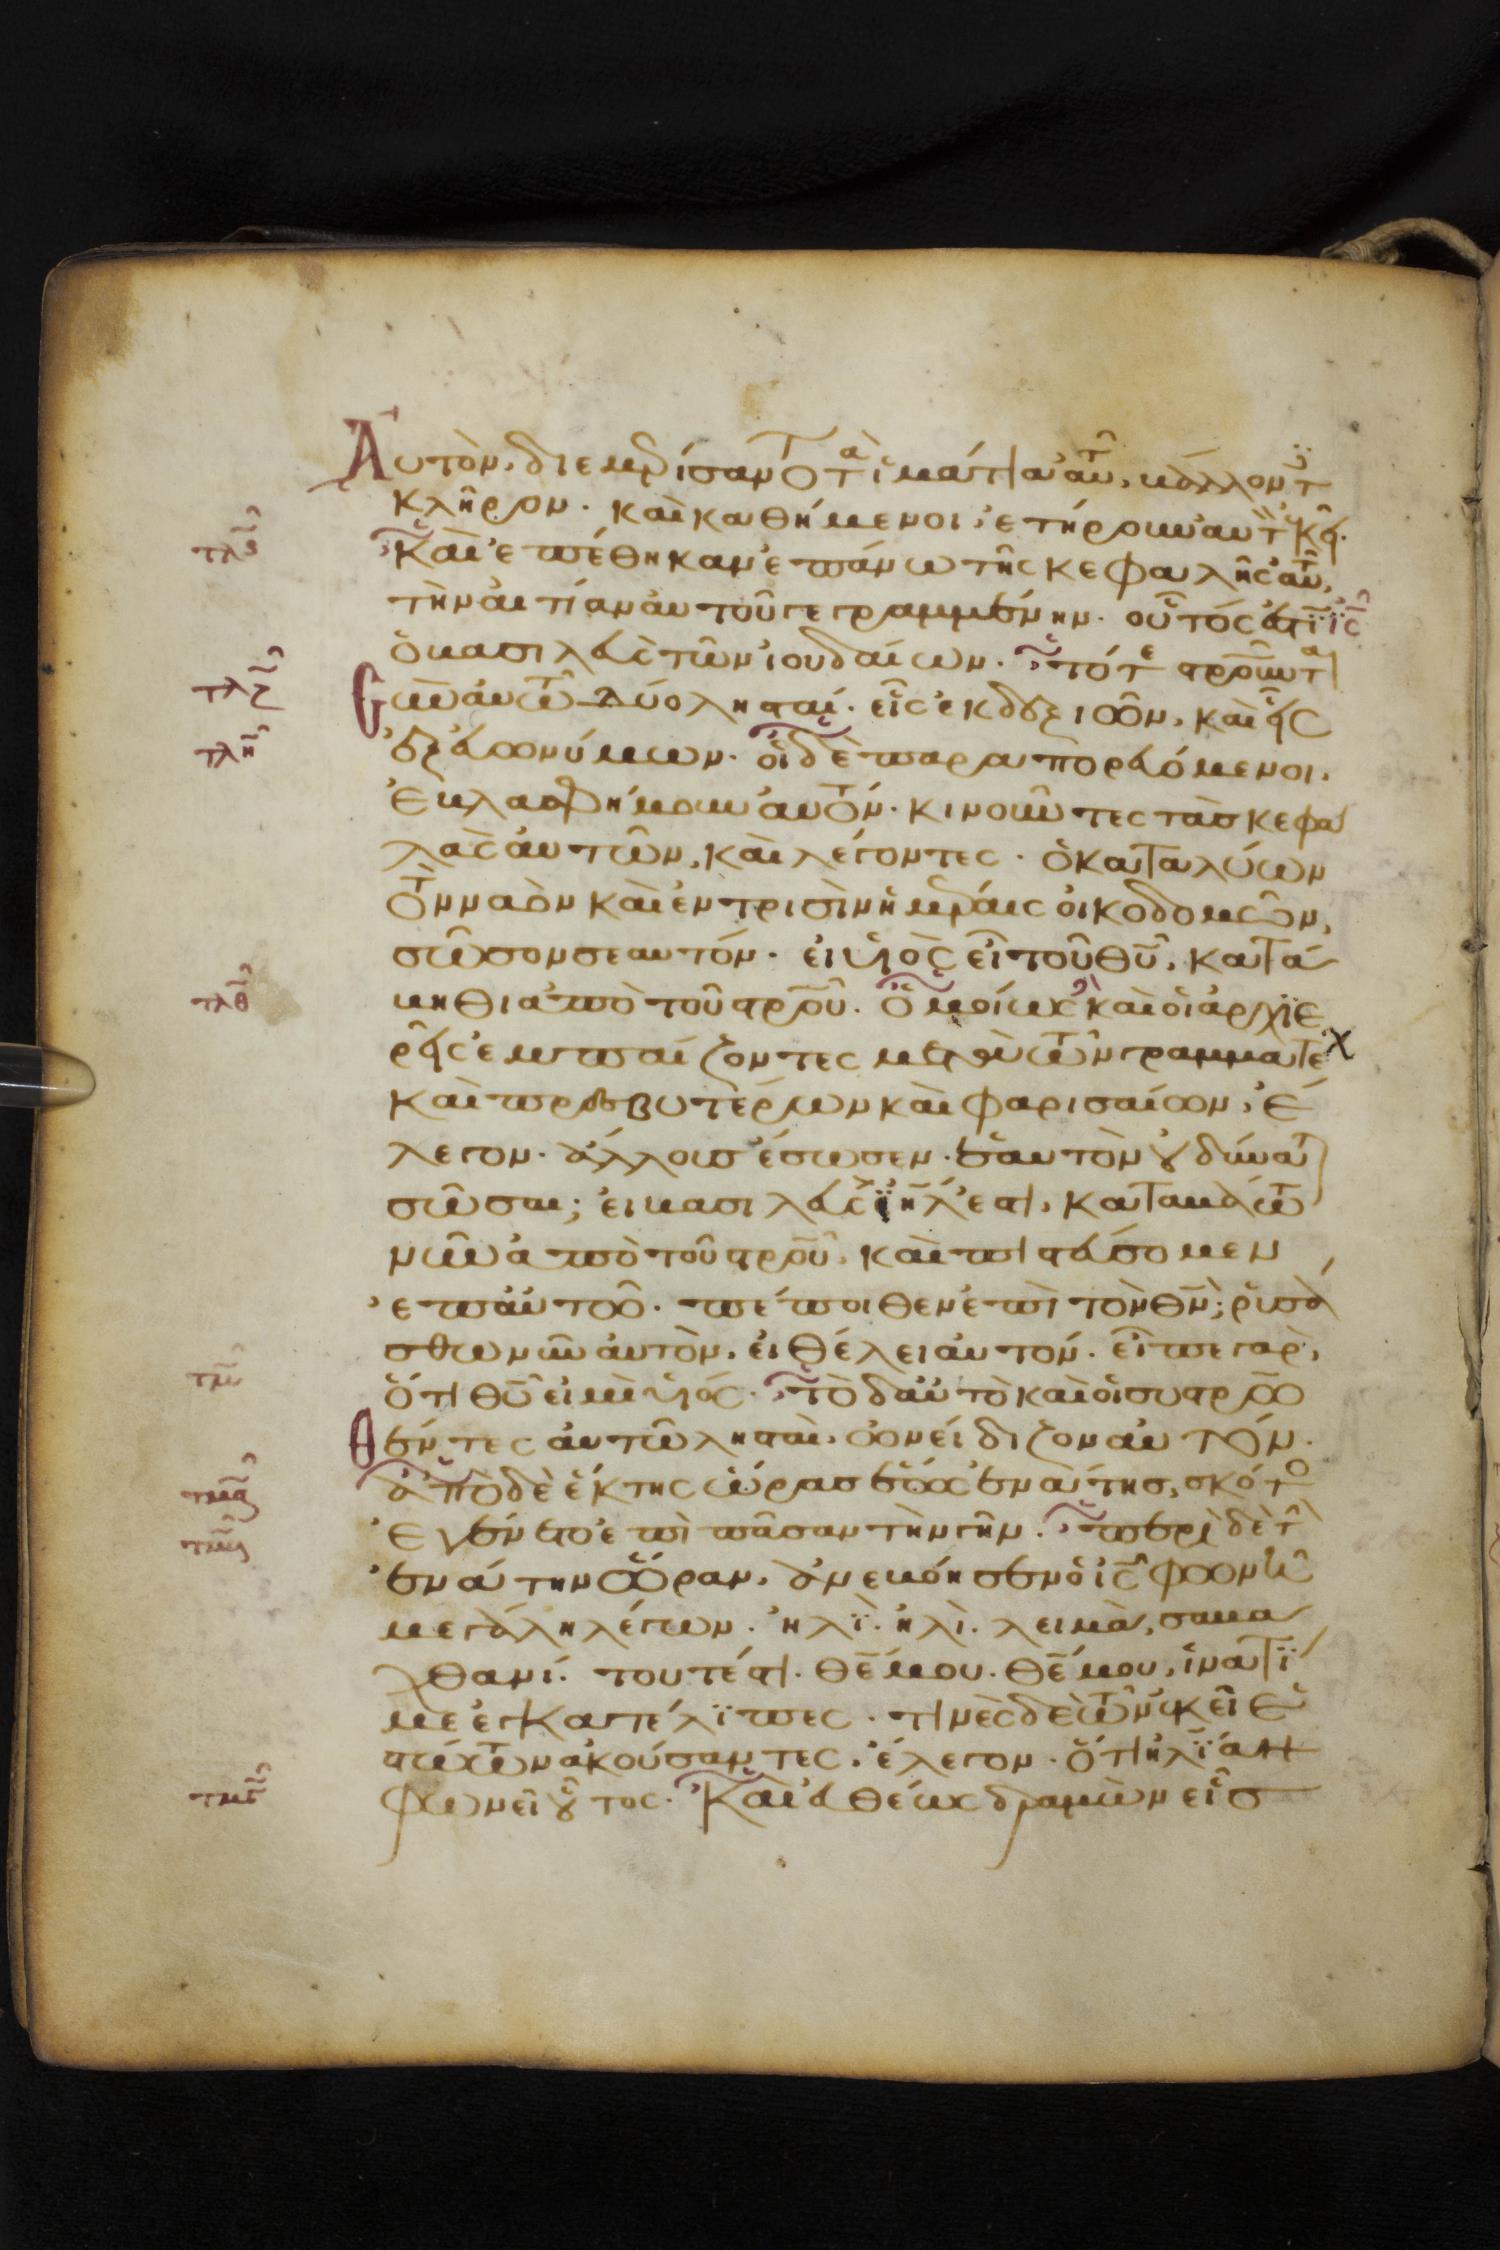 Αὐτὸν, διεμερίσαντο τὰ ἱμάτια αὐτοῦ, βάλλοντ
κλῆρον. καὶ καθήμενοι ἐτήρουν αὐτ ἐκεῖ.
τλϛ Καὶ ἐπέθηκαν ἐπάνω τῆς κεφαλῆς αὐτοῦ,
τὴν αἰτίαν αὐτοῦ γεγραμμένην. οὗτός ἐστιν ις
ὁ βασιλεὺς τῶν ἰουδαίων. τότε στροῦντα
τλζ Cὺν αὐτῶ δύο λησταί. εἷς ἐκ δεξιῶν, καὶ εἷς
τλη ἐξ εὐωνύμων. οἱ δὲ παραπορευόμενοι,
ἐβλασφήμουν αὐτόν. κινοῦντες τὰς κεφα
λὰς αὐτῶν, καὶ λέγοντες. ὁ καταλύων
τὸν ναὸν καὶ ἐν τρισὶν ἡμέραις οἰκοδομῶν,
σῶσον σεαυτόν. εἰ υἱὸς εἶ τοῦ θυ, κατά
τλθ βηθι ἀπὸ τοῦ στρου. Ὁμοίως καὶ οἱ ἀρχιε
ρεῖς ἐμπαίζοντες μετὰ τῶν γραμματε
καὶ πρεσβυτέρων καὶ φαρισαίων, ἔ
λεγον. ἄλλους ἔσωσεν. ἑαυτὸν οὐ δύνατ
σῶσαι; εἰ βασιλεὺς ιηλ ἐστι, καταβάτω
νῦν ἀπὸ τοῦ στρου, καὶ πιστεύσομεν
ἐπ' αὐτῶ. πέποιθεν ἐπὶ τὸν θν; ῥυσά
σθω νῦν αὐτὸν, εἰ θέλει αὐτόν. εἶπε γὰρ,
τμ ὅτι θυ εἰμὶ υἱός. τὸ δ' αὐτὸ καὶ οἱ συστρω
θέντες αὐτῶ λησταὶ, ὠνείδιζον αὐτόν.
τμα ἀπὸ δὲ ἕκτης ὥρας ἕως ἐνάτης, σκότο
τμβ ἐγένετο ἐπὶ πᾶσαν τὴν γῆν. περὶ δὲ τ
ἐνάτην ὥραν, ἀνεβόησεν ὁ ις φωνῆ
μεγάλη λέγων. ἠλϊ. ἠλὶ. λειμὰ, σαβα
χθανί. τουτέστι. θε μου. θε μου, ἱνατί
με ἐγκατέλϊπες. τινὲς δὲ τῶν ἐκεῖ ἑ
στώτων ἀκούσαντες, ἔλεγον. ὅτι ἠλϊαν
τμγ φωνεῖ οὗτος. Καὶ εὐθέως δραμὼν εἷς